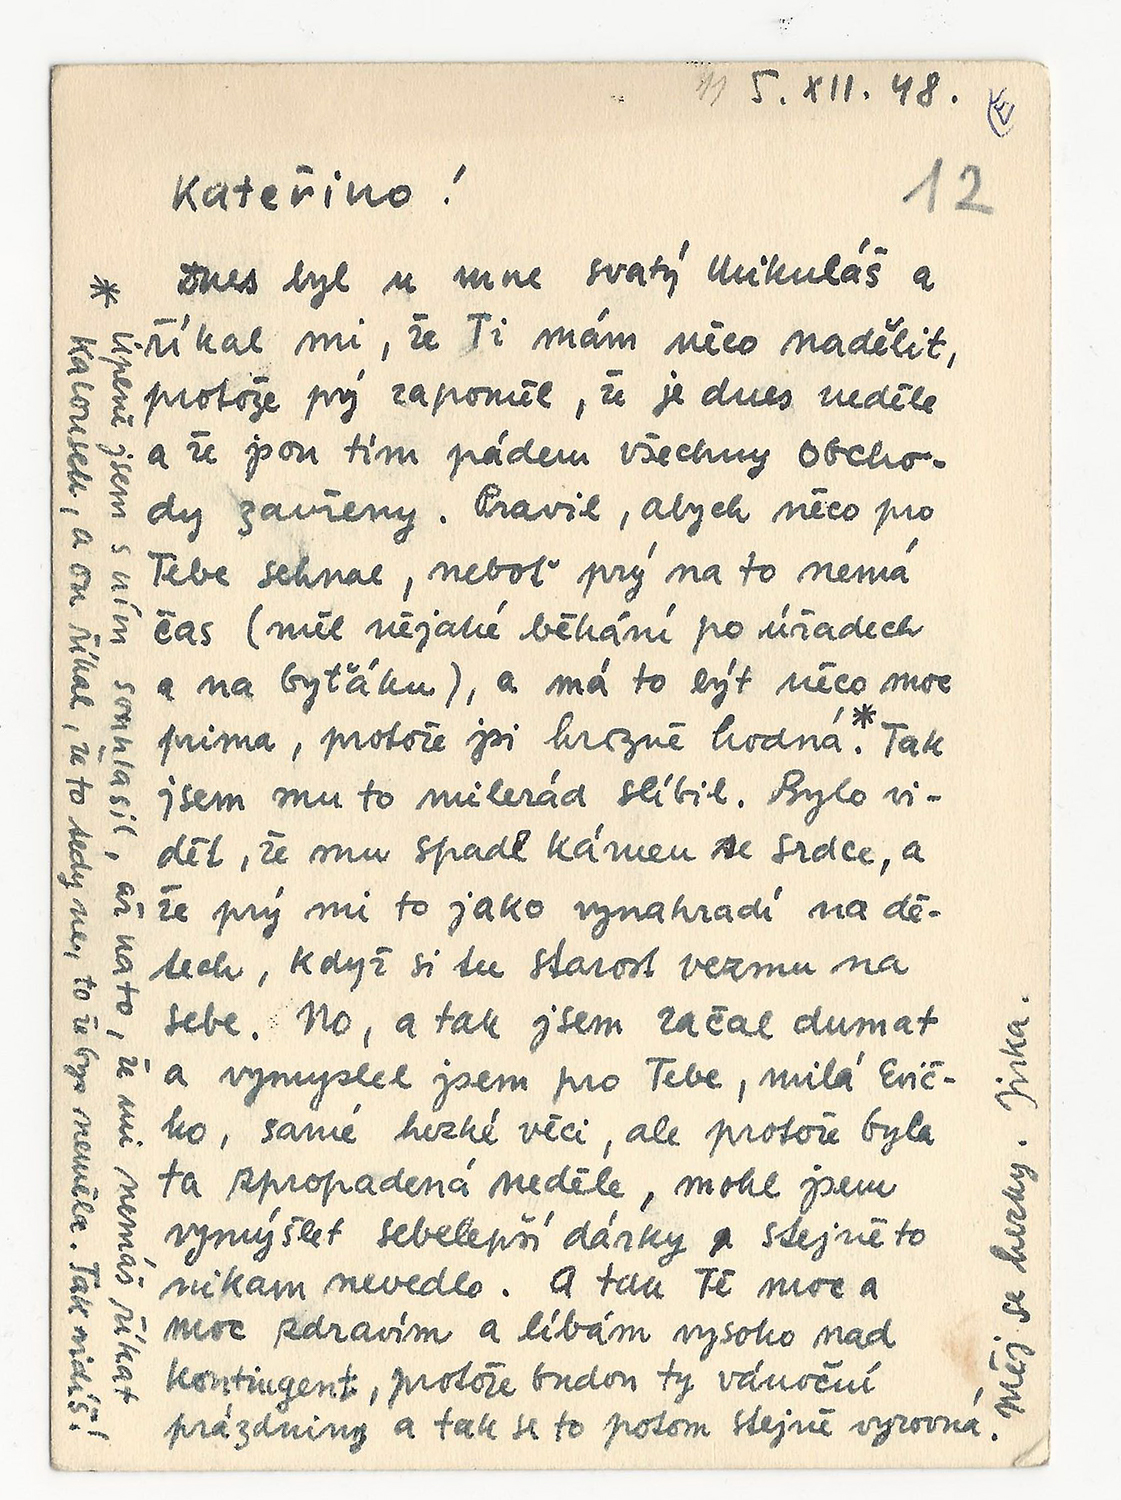 5. XII. 48.
12
Kateřino!
Dnes byl u mne svatý Mikuláš a
říkal mi, že Ti mám něco nadělit,
protože prý zapoměl, že je dnes neděle
a že jsou tím pádem všechny obcho-
dy zavřeny. Pravil, abych něco pro
Tebe sehnal, neboť prý na to nemá
čas (měl nějaké běhání po úřadech
a na byťáku), a má to být něco moc
prima, protože jsi hrozně hodná.* Tak
jsem mu to milerád slíbil. Bylo vi-
dět, že mu spadl kámen se srdce, a
že prý mi to jako vynahradí na dě-
tech, když si tu starost vezmu na
sebe. No, a tak jsem začal dumat
a vymyslel jsem pro Tebe, milá Evič-
ko, samé hezké věci, ale protože byla
ta zpropadená neděle, mohl jsem
vymýšlet sebelepší dárky a stejně to
nikam nevedlo. A tak Tě moc a
moc zdravím a líbám vysoko nad
kontingent, protože budou ty vánoční
prázdniny a tak se to potom stejně vyrovná.
Měj se hezky. Jirka.
* Úplně jsem s ním souhlasil, až na to, že mi nemáš říkat
Kalousek, a on říkal, že to tedy ne, to že bys neměla. Tak vidíš!